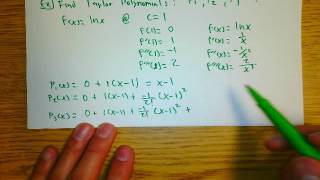 Ex) Find Taylor Polynomials : P₁, P₂, P₃
f(x) = lnx @ c = 1
f(1) = 0 f(x) = lnx
f'(1) = 1 f'(x) = 1/x
f''(1) = -1 f''(x) = -1/x²
f'''(1) = 2 f'''(x) = 2/x³
P₁(x) = 0 + 1(x-1) = x-1
P₂(x) = 0 + 1(x-1) + -1/2! (x-1)²
P₃(x) = 0 + 1(x-1) + -1/2! (x-1)² +